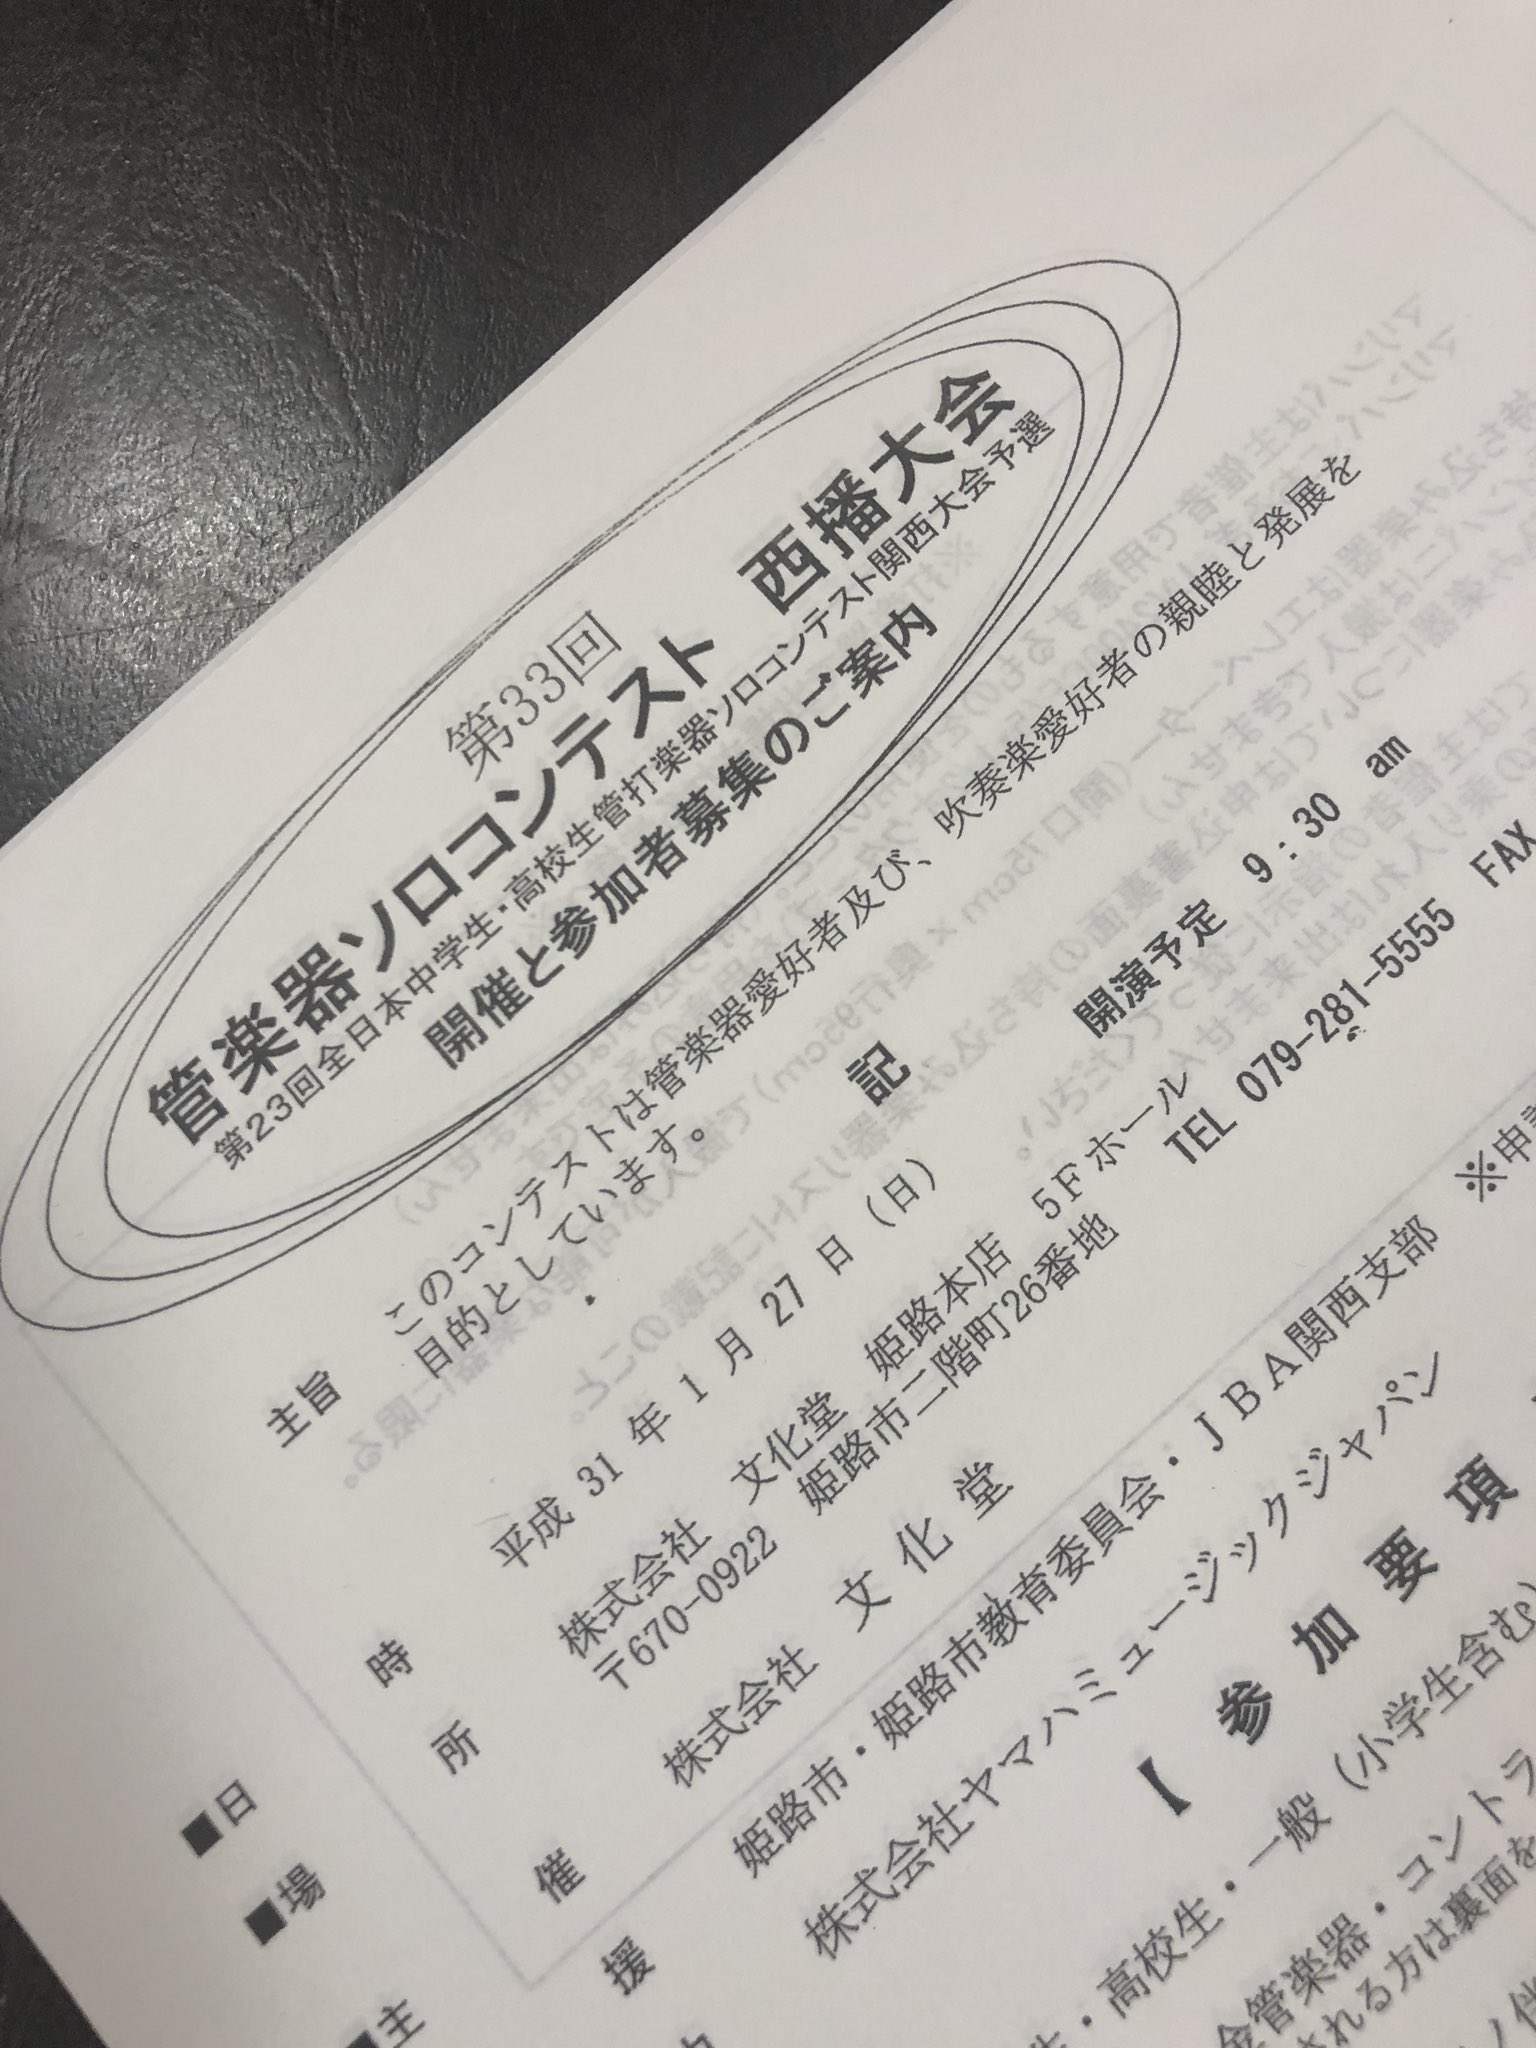 第33回
管楽器ソロコンテスト 西播大会
第23回全日本中学生・高校生管打楽器ソロコンテスト関西大会予選
開催と参加者募集のご案内
主旨 このコンテストは管楽器愛好者及び、吹奏楽愛好者の親睦と発展を
目的としています。
記
■日 時 平成 31 年 1 月 27 日 (日) 開演予定 9:30 am
■場 所 株式会社 文化堂 姫路本店 5Fホール
〒670-0922 姫路市二階町26番地 TEL 079-281-5555 FAX
■主 催 株式会社 文 化 堂
援 姫路市・姫路市教育委員会・JBA関西支部 ※申
株式会社ヤマハミュージックジャパン
【 参 加 要 項
・高校生・一般 (小学生含む)
金管楽器・コントラ
される方は裏面を